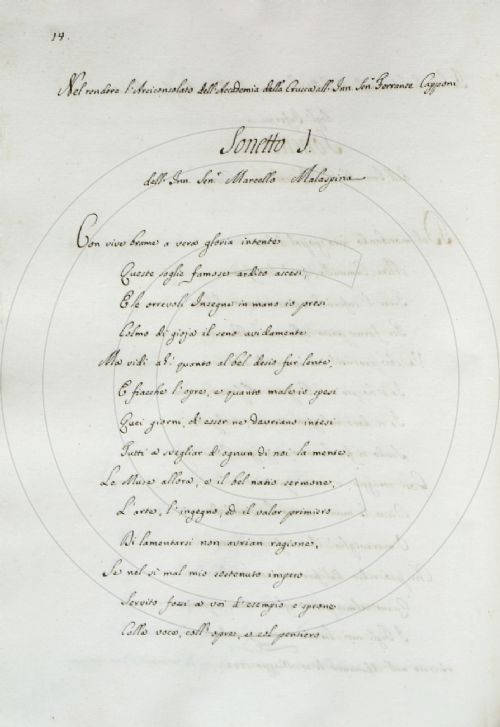 14.
Nel rendere l'Arciconsolato dell'Accademia della Crusca all'Inn. Sen.r Ferrante Capponi
Sonetto I.
dell'Inn. Sen.r Marcello Malaspina
Con vive brame a vera gloria intente
Queste soglie famose ardito ascesi,
E le orrevoli Insegne in mano io presi
Colmo di gioja il seno avidamente
Ma vidi ah! quanto al bel desio fur lente,
E fiacche l'opre, e quanto male io spesi
Quei giorni, ch'esser ne dovriano intesi
Tutti a svegliar d'ognun di noi la mente
Le Muse allora, e il bel natio sermone,
L'arte, l'ingegno, ed il valor primiero
Di lamentarsi non avrian ragione,
Se nel sì mal mio sostenuto impero
Servito fossi a voi d'esempio e sprone
Colla voce, coll'opre, e col pensiero